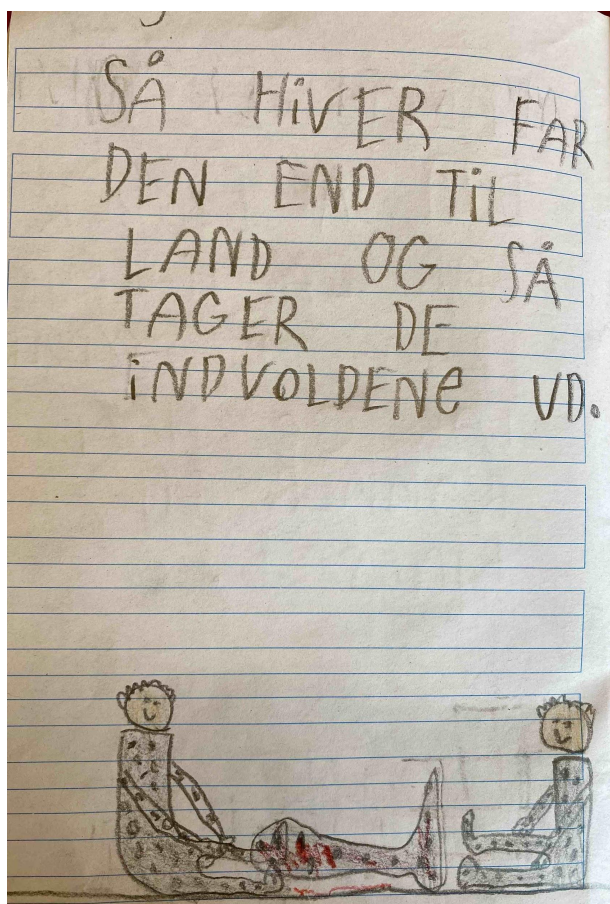 SÅ HiVER FAR
DEN END TiL
LAND OG SÅ
TAGER DE
iNDVOLDENe UD.